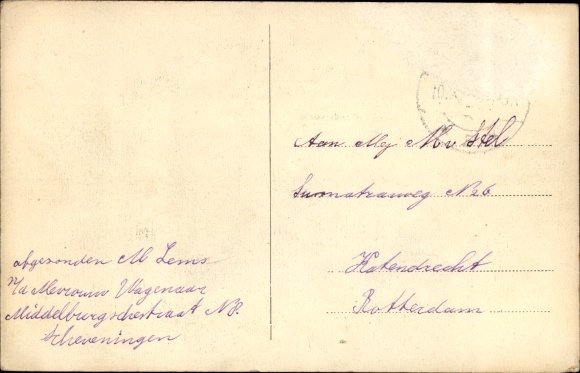 Aan Mej M v Stel
Sumatraweg No 6
Katendrecht
Rotterdam
afgezonden M Lems
p/a Mevrouw Wagenaar
Middelburgschestraat No.
Scheveningen